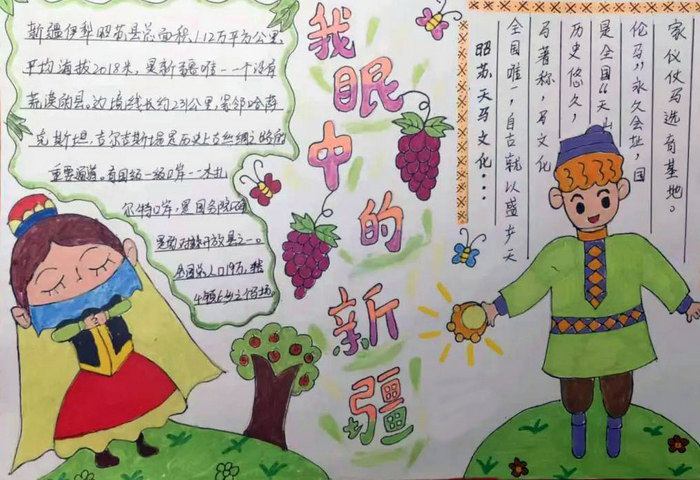 我眼中的新疆
新疆伊犁昭苏县总面积1.12万平方公里,
平均海拔2018米,是新疆唯一一个没有
荒漠的县。边境线长约231公里,紧邻哈萨
克斯坦,吉尔吉斯坦是历史上古丝绸之路的
重要通道。有国家一级口岸一木扎
尔特口岸,是国务院确
对外开放县之一。
全国总人口19万,辖
4镇6乡
昭苏天马文化...
全国唯一,自古就以盛产天
马著称,马文化
历史悠久,
是全国"天山
伦马"永久会址,国
家仪仗马选育基地。